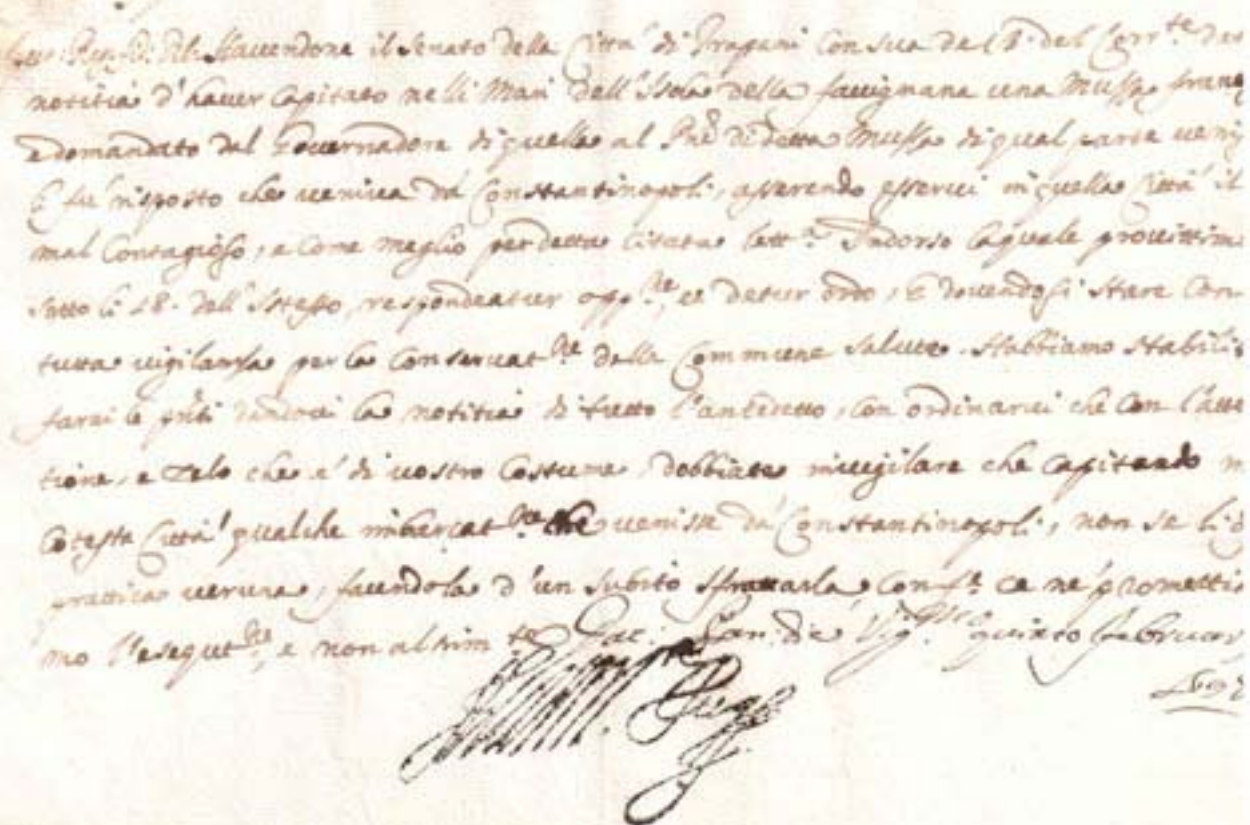 Reg. Fid. Dil. Havendone il Senato della Città di Trapani con sua del p.º del Corr.te dat
notitia d'haver Capitato nelli Mari dell'Isola della favignana una Mussa franc
e domandato dal Governadore di quella al Pne di detta Mussa di qual parte veni
fu risposto che veniva da Constantinopoli, asserendo esservi in quella Città il
mal Contagioso, e come meglio per detta citata lett.ª Indorso la quale provistim
sotto li 18. dell'istesso, respondeatur opp.ne, et detur ordo, E dovendosi stare Con
tutta vigilanza per la Conservat.ne della Commune salute. Habbiamo stabili
farvi le pnti dandovi la notitia di tutto l'antedetto, con ordinarvi che con l'atte
tione, e zelo che é di vostro Costume, debbiate invigilare che Capitando n
Cotesta Città qualche imbarcat.ne che venisse dà Constantinopoli, non se li d
prattica veruna, facendola d'un subito sfrattarla, Con f.ª Ce né promettia
mo l'esequt.ne, e non altrim.te Pan. die quinto februarij